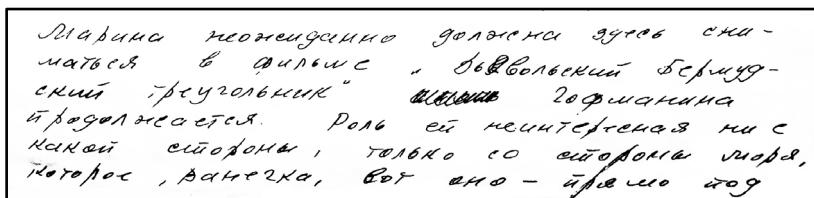 Марина неожиданно должна здесь сни-
маться в фильме „Дьявольский Бермуд-
ский треугольник“ Гофманиана
продолжается. Роль ей неинтересная ни с
какой стороны, только со стороны моря,
которое, Ванечка, вот оно – прямо под